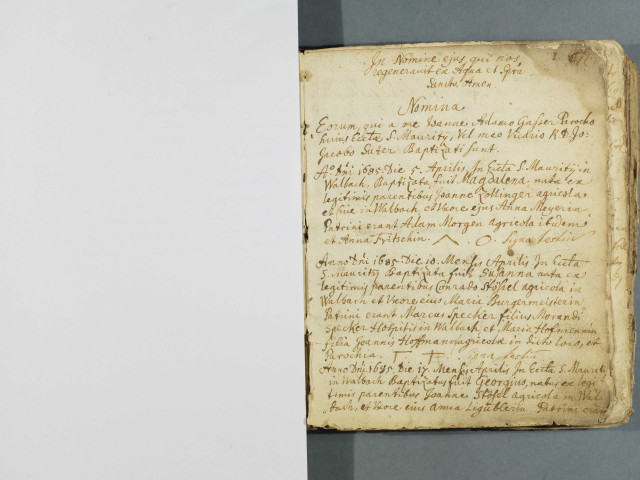 In Nomine ejus qui nos
regeneravit ex Aqua et Spiri
Sancto. Amen.
Nomina
Eorum, qui a me Joanne Adamo Gasser Parocho
huius Eccta S. Maurity, vel meo Vicario R. D. Jo:
Jacobo Suter Baptizati sunt.
Ao Dni 1685. Die 5. Aprilis, In Eccta S. Maurity in
Walbach, Baptizata fuit Magdalena, nata ex
legitimis parentibus Joanne Zollinger agricola
et in Walbach, et Uxore ejus Anna Meyerin
Patrini erant Adam Morgen agricola ibidem
et Anna Fritschin. O. Signa
Anno Dni 1685. Die 10. Mensis Aprilis In Eccta
S. Maurity Baptizata fuit Susanna nata ex
legitimis parentibus Conrado Stösel agricola in
Walbach et Uxore eius Maria Burgermeisterin
Patrini erant Marcus Specker filius Morandi
Specker Hospitis in Walbach et Maria Hofmennin
filia Joannis Hoffmann agricola in dicto loco, et
Parochia.
Anno Dnj 1685. Die 17. Mensis Aprilis In Eccta S. Maurity
in Walbach Baptizatus fuit Georgius, natus ex legi
timis parentibus Joanne Stösel agricola in Wal
bach, et Uxore eius Anna Patrini erant